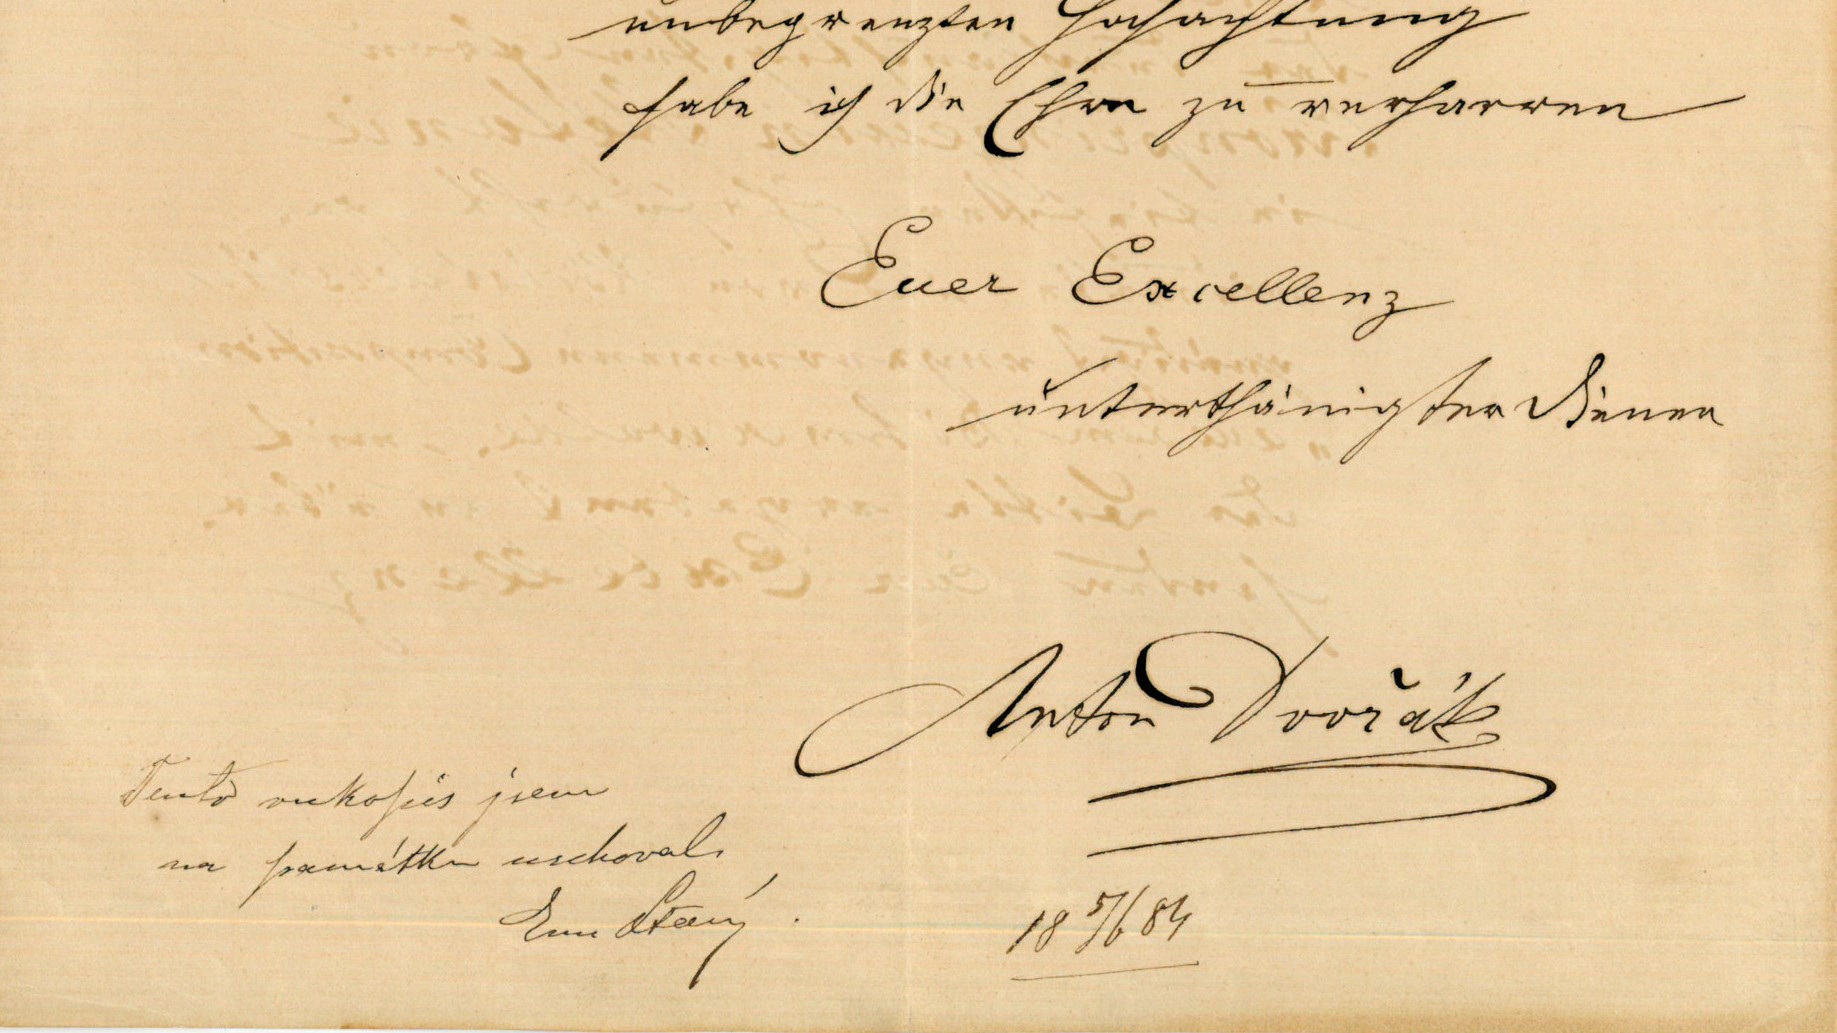 unbegrenzten Hochachtung
habe ich die Ehre zu verharren
Euer Excellenz
unterthänigster Diener
Anton Dvořák
Tento rukopis jsem
na památku uschoval
Em Starý.
18 5/6 84